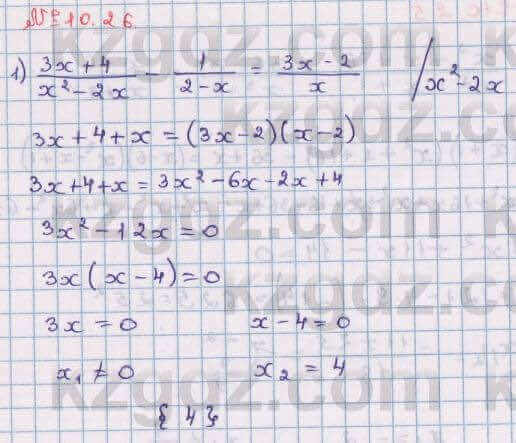 № 10.26.
1) (3x + 4)/(x² - 2x) - 1/(2 - x) = (3x - 2)/x   / x² - 2x
3x + 4 + x = (3x - 2)(x - 2)
3x + 4 + x = 3x² - 6x - 2x + 4
3x² - 12x = 0
3x(x - 4) = 0
3x = 0   x - 4 = 0
x₁ ≠ 0   x₂ = 4
{4}
kzgdz.com